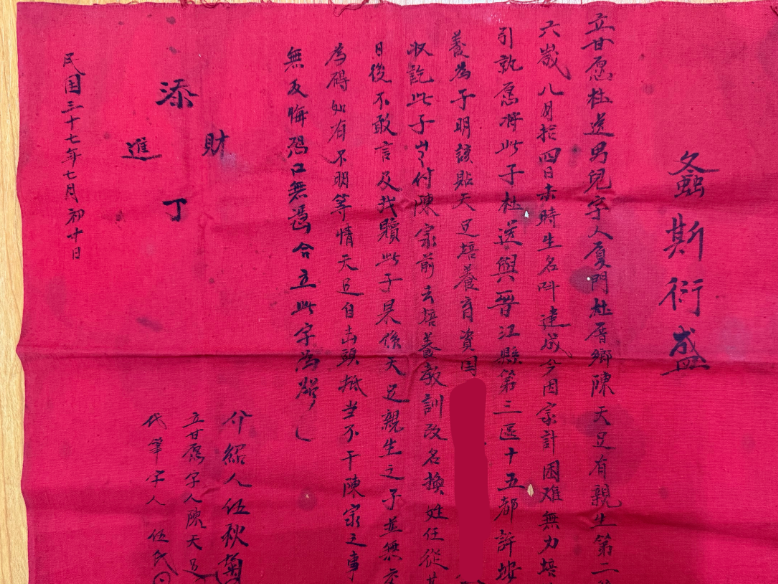 螽斯衍盛
立甘愿杜送男兒字人厦門杜厝鄉陳天足有親生第二
六嵗八月拾四日未時生名阡達成今因家計困难無力培
引就愿將此子杜送與晋江縣第三區十五都許
養為子明該貼天足培養育資国
收訖此子付陳家前去培養教訓改名換姓任從其
日後不敢言及找贖此子果係天足親生之子並無
為碍如有不明等情天足自出頭抵当不干陳家之事
無反悔恐口無憑合立此字為照
添丁
進財
介紹人伍秋菊
立甘愿字人陳天足
代筆字人伍氏
民国三十七年七月初十日